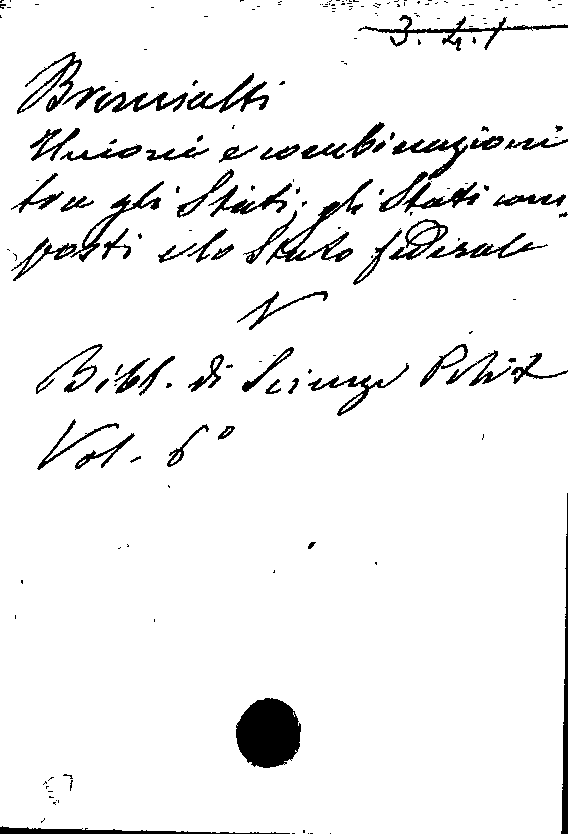 3. 4. 1
Brunialti
Unioni e combinazioni
tra gli Stati; gli Stati com-
posti e lo Stato federale
V
Bibl. di Scienze Polit
Vol. 6°